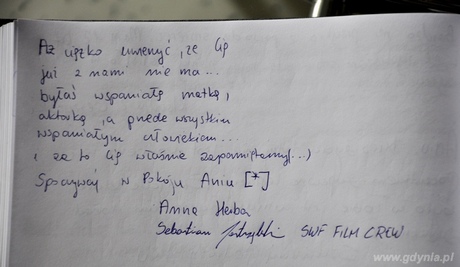 Aż ciężko uwierzyć, że Cię
już z nami nie ma...
byłaś wspaniałą matką,
aktorką, a przede wszystkim
wspaniałym człowiekiem...
i za to Cię właśnie zapamiętamy(...)
Spoczywaj w Pokoju Aniu [*]
Anna
Sebastian SWF FILM CREW
www.gdynia.pl